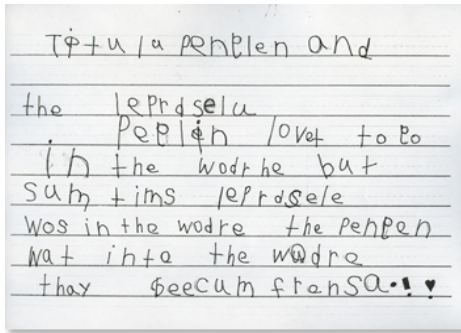 Titula penglen and
the leprdselu
Peplin lovet to go
in the wodrhe but
sum tims leprdsele
wos in the wodre the Pengen
wat into the wodre
thay beecum frensa.!♥